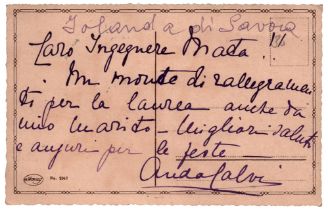 Jolanda di Savoia
Caro Ingegnere Mada.
Un monte di rallegramen
ti per la laurea anche da
mio marito - Migliori saluti
e auguri per le feste -
Anda Calvi
No. 2941